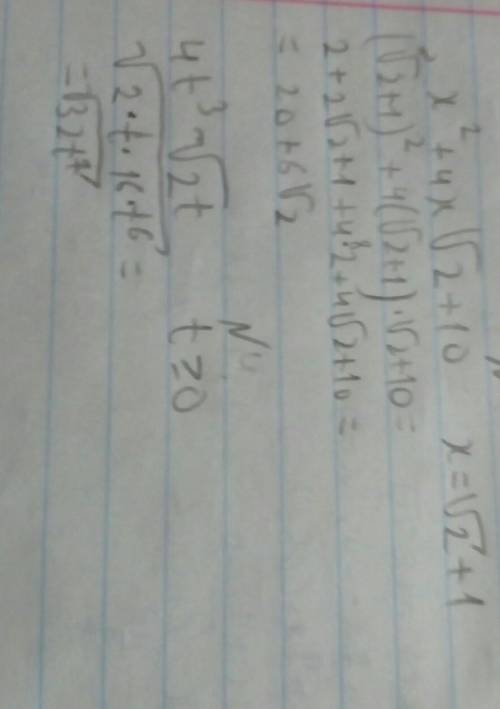 x² + 4x√2 + 10    x = √2 + 1
(√2+1)² + 4(√2+1)·√2 + 10 =
2 + 2√2 + 1 + 4·2 + 4√2 + 10 =
= 20 + 6√2
N
4t³√2t    t ≥ 0
√2·t·16t⁶ =
= √32t⁷